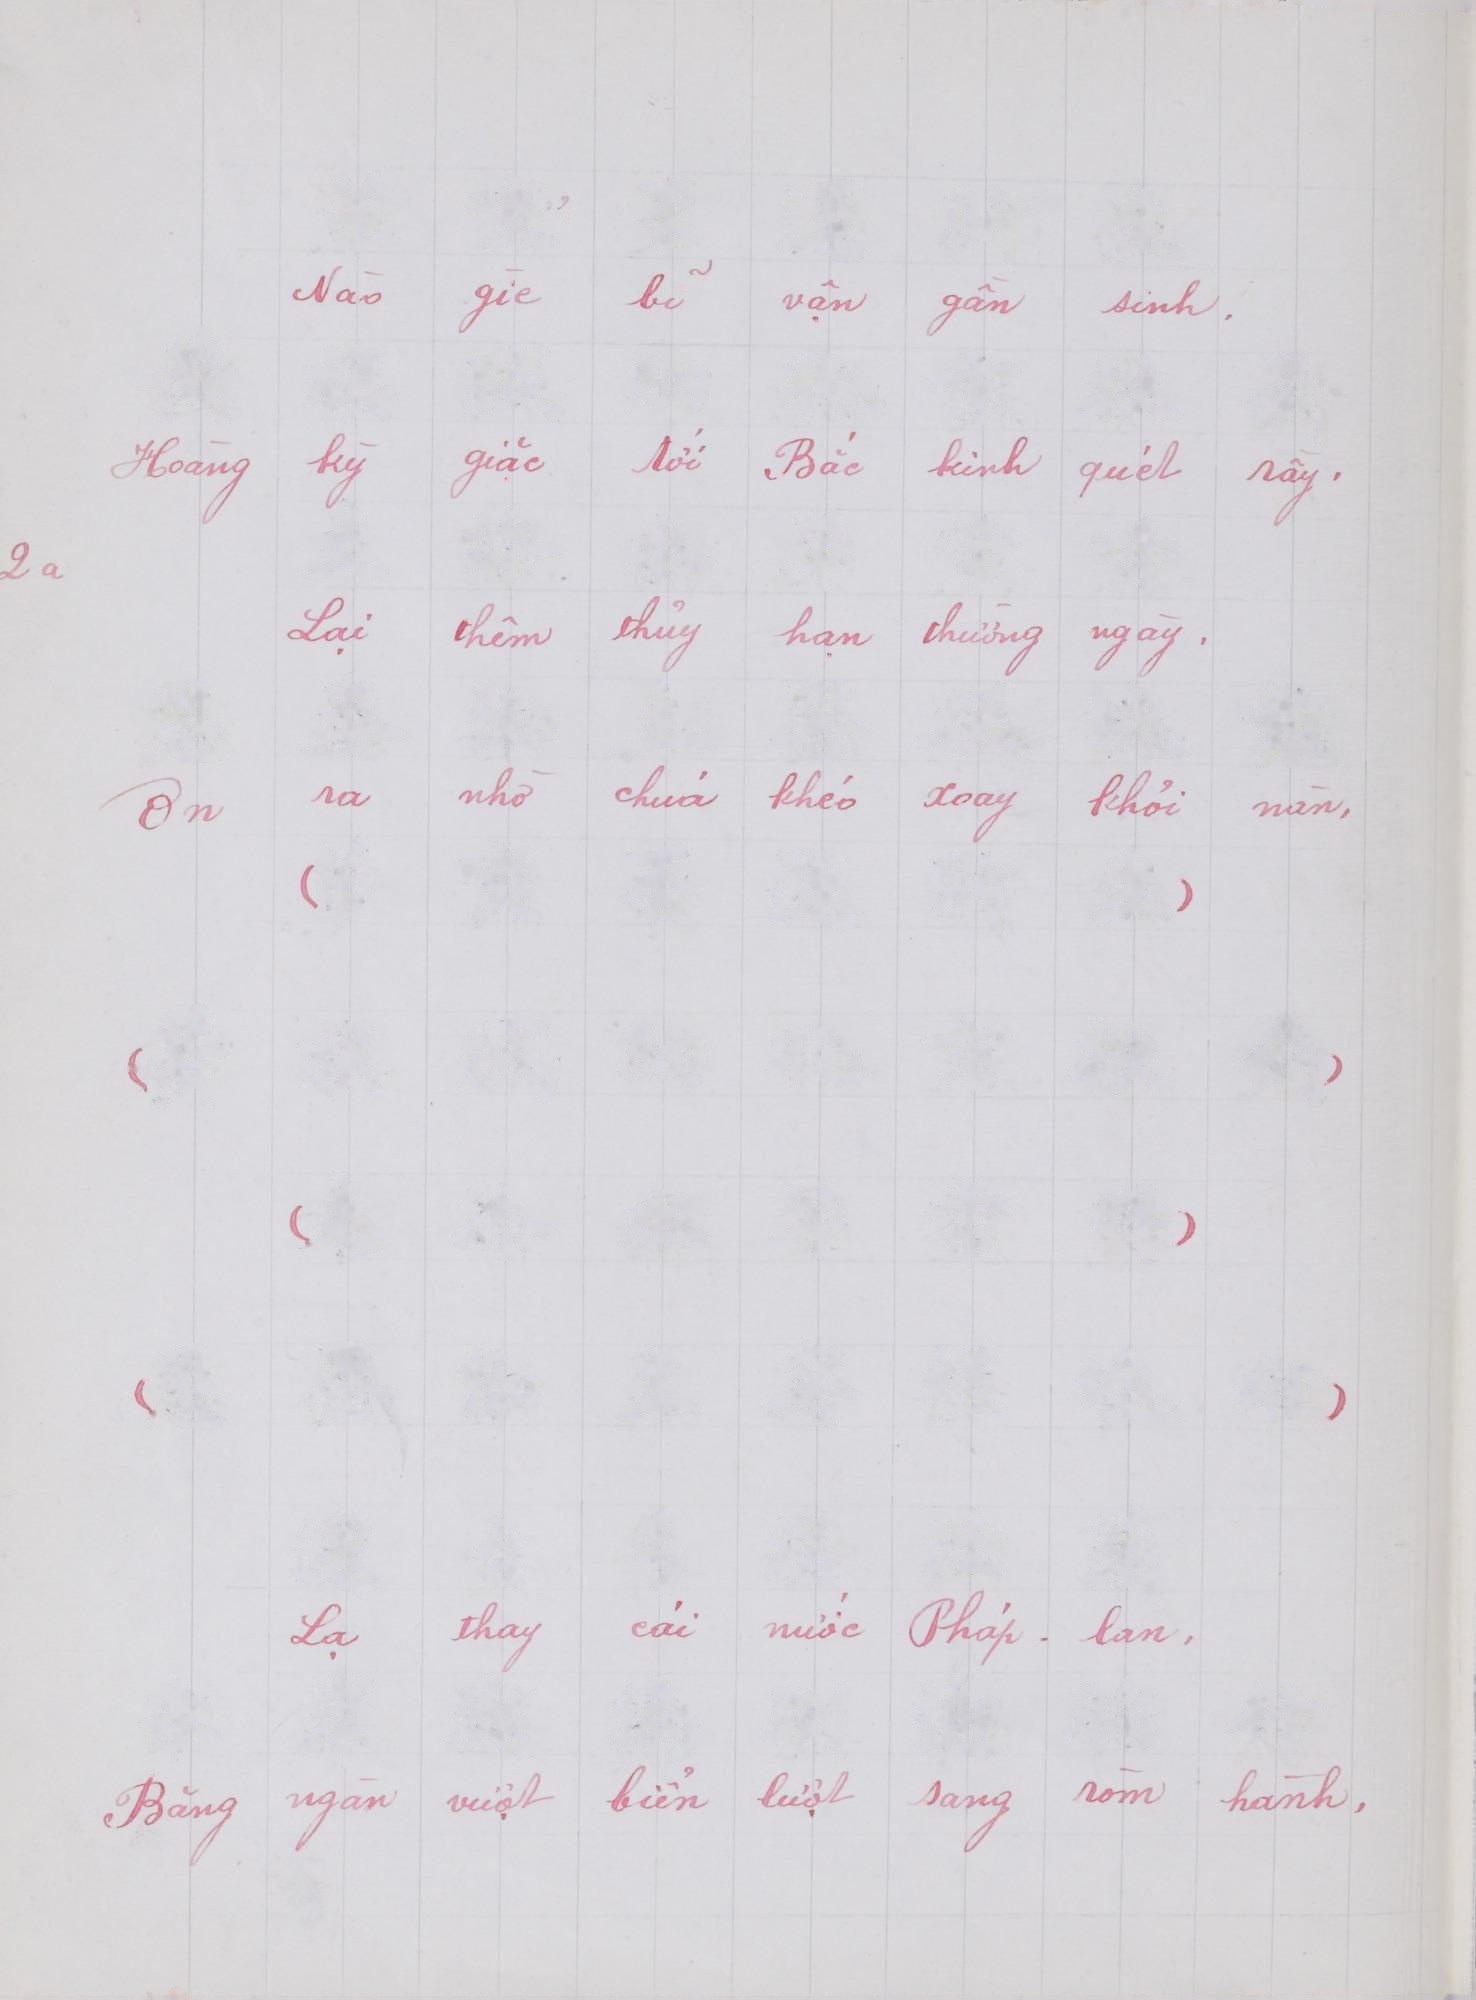 Nào giề bĩ vận gần sinh.
Hoàng kỳ giặc tới Bắc kinh quét rầy.
2a
Lại thêm thủy hạn thường ngày.
Ơn ra nhờ chuá khéo xoay khỏi nàn,
( )
( )
( )
( )
Lạ thay cái nước Pháp - lan,
Băng ngàn vượt biển lượt sang ròm hành,